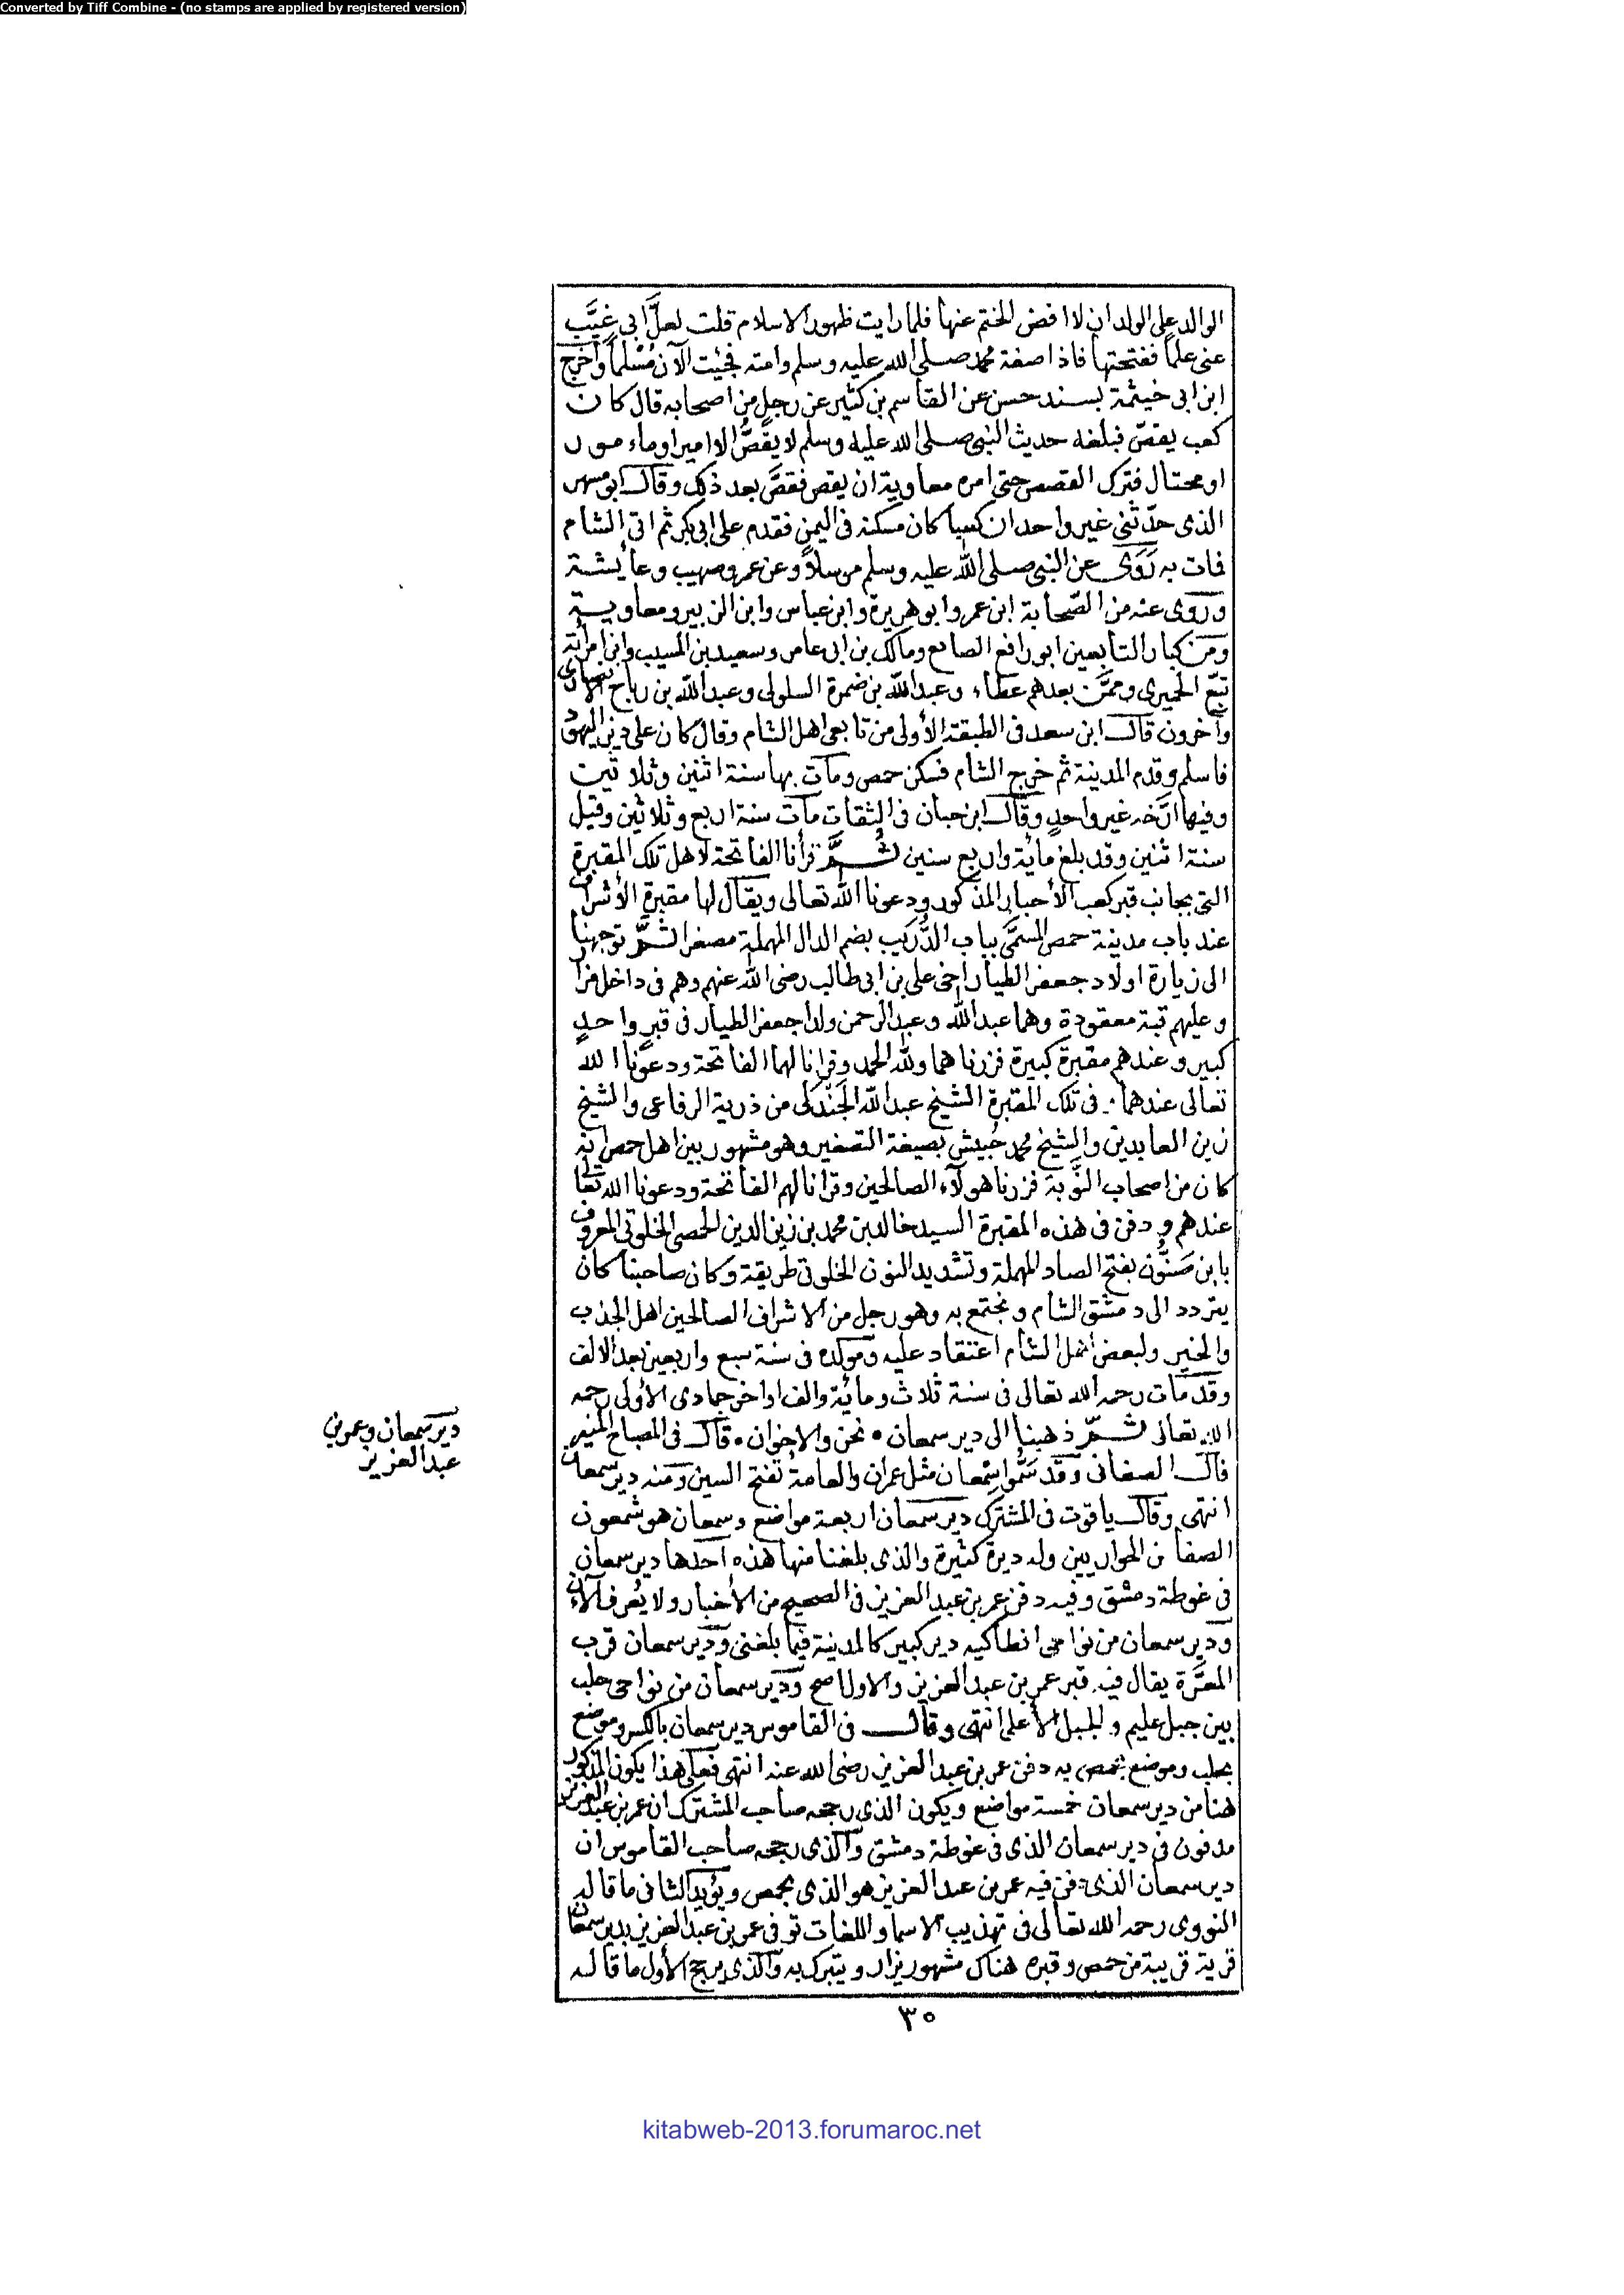 Converted by Tiff Combine - (no stamps are applied by registered version)
الوالد على الولد ان لا افض الختم عنها فلما رايت ظهور الاسلام قلت لعلَّ ابي غيَّب
عنى علما ففتحتها فاذا صفة محمد صلى الله عليه وسلم وامته فجئت الآن مُسْلما وأخرج
ابن ابى خيثمة بسند حسن عن القاسم بن كثير عن رجل من اصحابه قال كان
كعب يقصّ فبلغه حديث النبي صلى الله عليه وسلم لا يقُصُّ الا امير او مامور
او محتال فترك القصص حتى امره معاوية ان يقص فقصَّ بعد ذلك وقال ابو مسهر
الذى حدّثنى غير واحد ان كعبا كان مسكنه فى اليمن فقدم على ابى بكر ثم اتى الشام
فمات به رَوَى عن النبى صلى الله عليه وسلم مرسلاً وعن عمر وصهيب وعايشة
وروى عنه من الصّحابة ابن عمر وابو هريرة وابن عباس وابن الزبير ومعاوية
ومن كبار التابعين ابو رافع الصايغ ومالك بن ابى عامر وسعيد بن المسيب وابن امرأته
تبّع الحميرى وممّن بعدهم عطاء وعبد الله بن ضمرة السلولى وعبد الله بن رباح الانصارى
وآخرون قال ابن سعد فى الطبقة الأولى من تابعى اهل الشام وقال كان على دين اليهود
فاسلم وقدم المدينة ثم خرج الشام فسكن حمص ومات بها سنة اثنين وثلاثين
وفيها ارّخه غير واحدٍ وقال ابن حبان فى الثقات مات سنة اربع وثلاثين وقيل
سنة اثنين وقد بلغ مائة واربع سنين ثُمَّ قرأنا الفاتحة لاهل تلك المقبرة
التى بجانب قبر كعب الأحبار المذكور ودعونا الله تعالى ويقال لها مقبرة الأشراف
عند باب مدينة حمص المسمَّى بباب الدُّرَيب بضم الدال المهملة مصغرا ثمَّ توجهنا
الى زيارة اولاد جعفر الطيار اخى على بن ابى طالب رضى الله عنهم وهم فى داخل مزار
وعليهم قبة معقودة وهما عبد الله وعبد الرحمن ولدا جعفر الطيار فى قبرٍ واحدٍ
كبير وعندهم مقبرة كبيرة فزرناهما ولله الحمد وقرانا لهما الفاتحة ودعونا الله
تعالى عندهما. فى تلك المقبرة الشيخ عبد الله الجَنْدَلى من ذرية الرفاعى والشيخ
زين العابدين والشيخ محمد حُبيش بصيغة التصغير وهو مشهور بين اهل حمص انه
كان من اصحاب النَّوبة فزرنا هولآء الصالحين وقرانا لهم الفاتحة ودعونا الله تعالى
عندهم ودفن فى هذه المقبرة السيد خالد بن محمد بن زين الدين الحمصى الخلوتى المعروف
بابن صَنّون بفتح الصاد المهملة وتشديد النون الخلوتى طريقة وكان صاحبنا كان
يتردد الى دمشق الشام ونجتمع به وهو رجل من الاشراف الصالحين اهل الجذب
والخير ولبعض اهل الشام اعتقاد عليه ومولده فى سنة سبع واربعين بعد الالف
وقد مات رحمه الله تعالى فى سنة ثلاث ومائة والف اواخر جمادى الأولى رحمه
الله تعالى ثمّ ذهبنا الى دير سمعان • نحن والاخوان • قال فى المصباح المنير
قال الصغانى وقد سَمُّوا سِمْعان مثل عمران والعامة تفتح السين ومنه دير سمعان
انتهى وقال ياقوت فى المشترك دير سمعان اربعة مواضع وسمعان هو شمعون
الصفا من الحواريين وله ديرة كثيرة والذى بلغنا منها هذه احدها دير سمعان
فى غوطة دمشق وفيه دفن عمر بن عبد العزيز فى الصحيح من الأخبار ولا يُعرف الآن
ودير سمعان من نواحى انطاكيه دير كبير كالمدينة فيما بلغنى ودير سمعان قرب
المعرَّة يقال فيه قبر عمر بن عبد العزيز والاول اصح ودير سمعان من نواحى حلب
بين جبل عليم والجبل الأعلى انتهى وقال فى القاموس دير سمعان بالكسر موضع
بحلب وموضع بحمص به دفن عمر بن عبد العزيز رضى الله عنه انتهى فعلى هذا يكون المذكور
هنا من دير سمعان خمسة مواضع ويكون الذى رجحه صاحب المشترك ان عمر بن عبد العزيز
مدفون فى دير سمعان الذى فى غوطة دمشق والذى رجحه صاحب القاموس ان
دير سمعان الذى دفن فيه عمر بن عبد العزيز هو الذى بحمص ويؤيد الثانى ما قاله
النووى رحمه الله تعالى فى تهذيب الاسما واللغات توفى عمر بن عبد العزيز بدير سمعان
قرية قريبة من حمص وقبره هناك مشهور يزار ويتبرك به والذى يرجح الأول ما قاله
دير سمعان وعمر بن
عبد العزيز
٣٥
kitabweb-2013.forumaroc.net